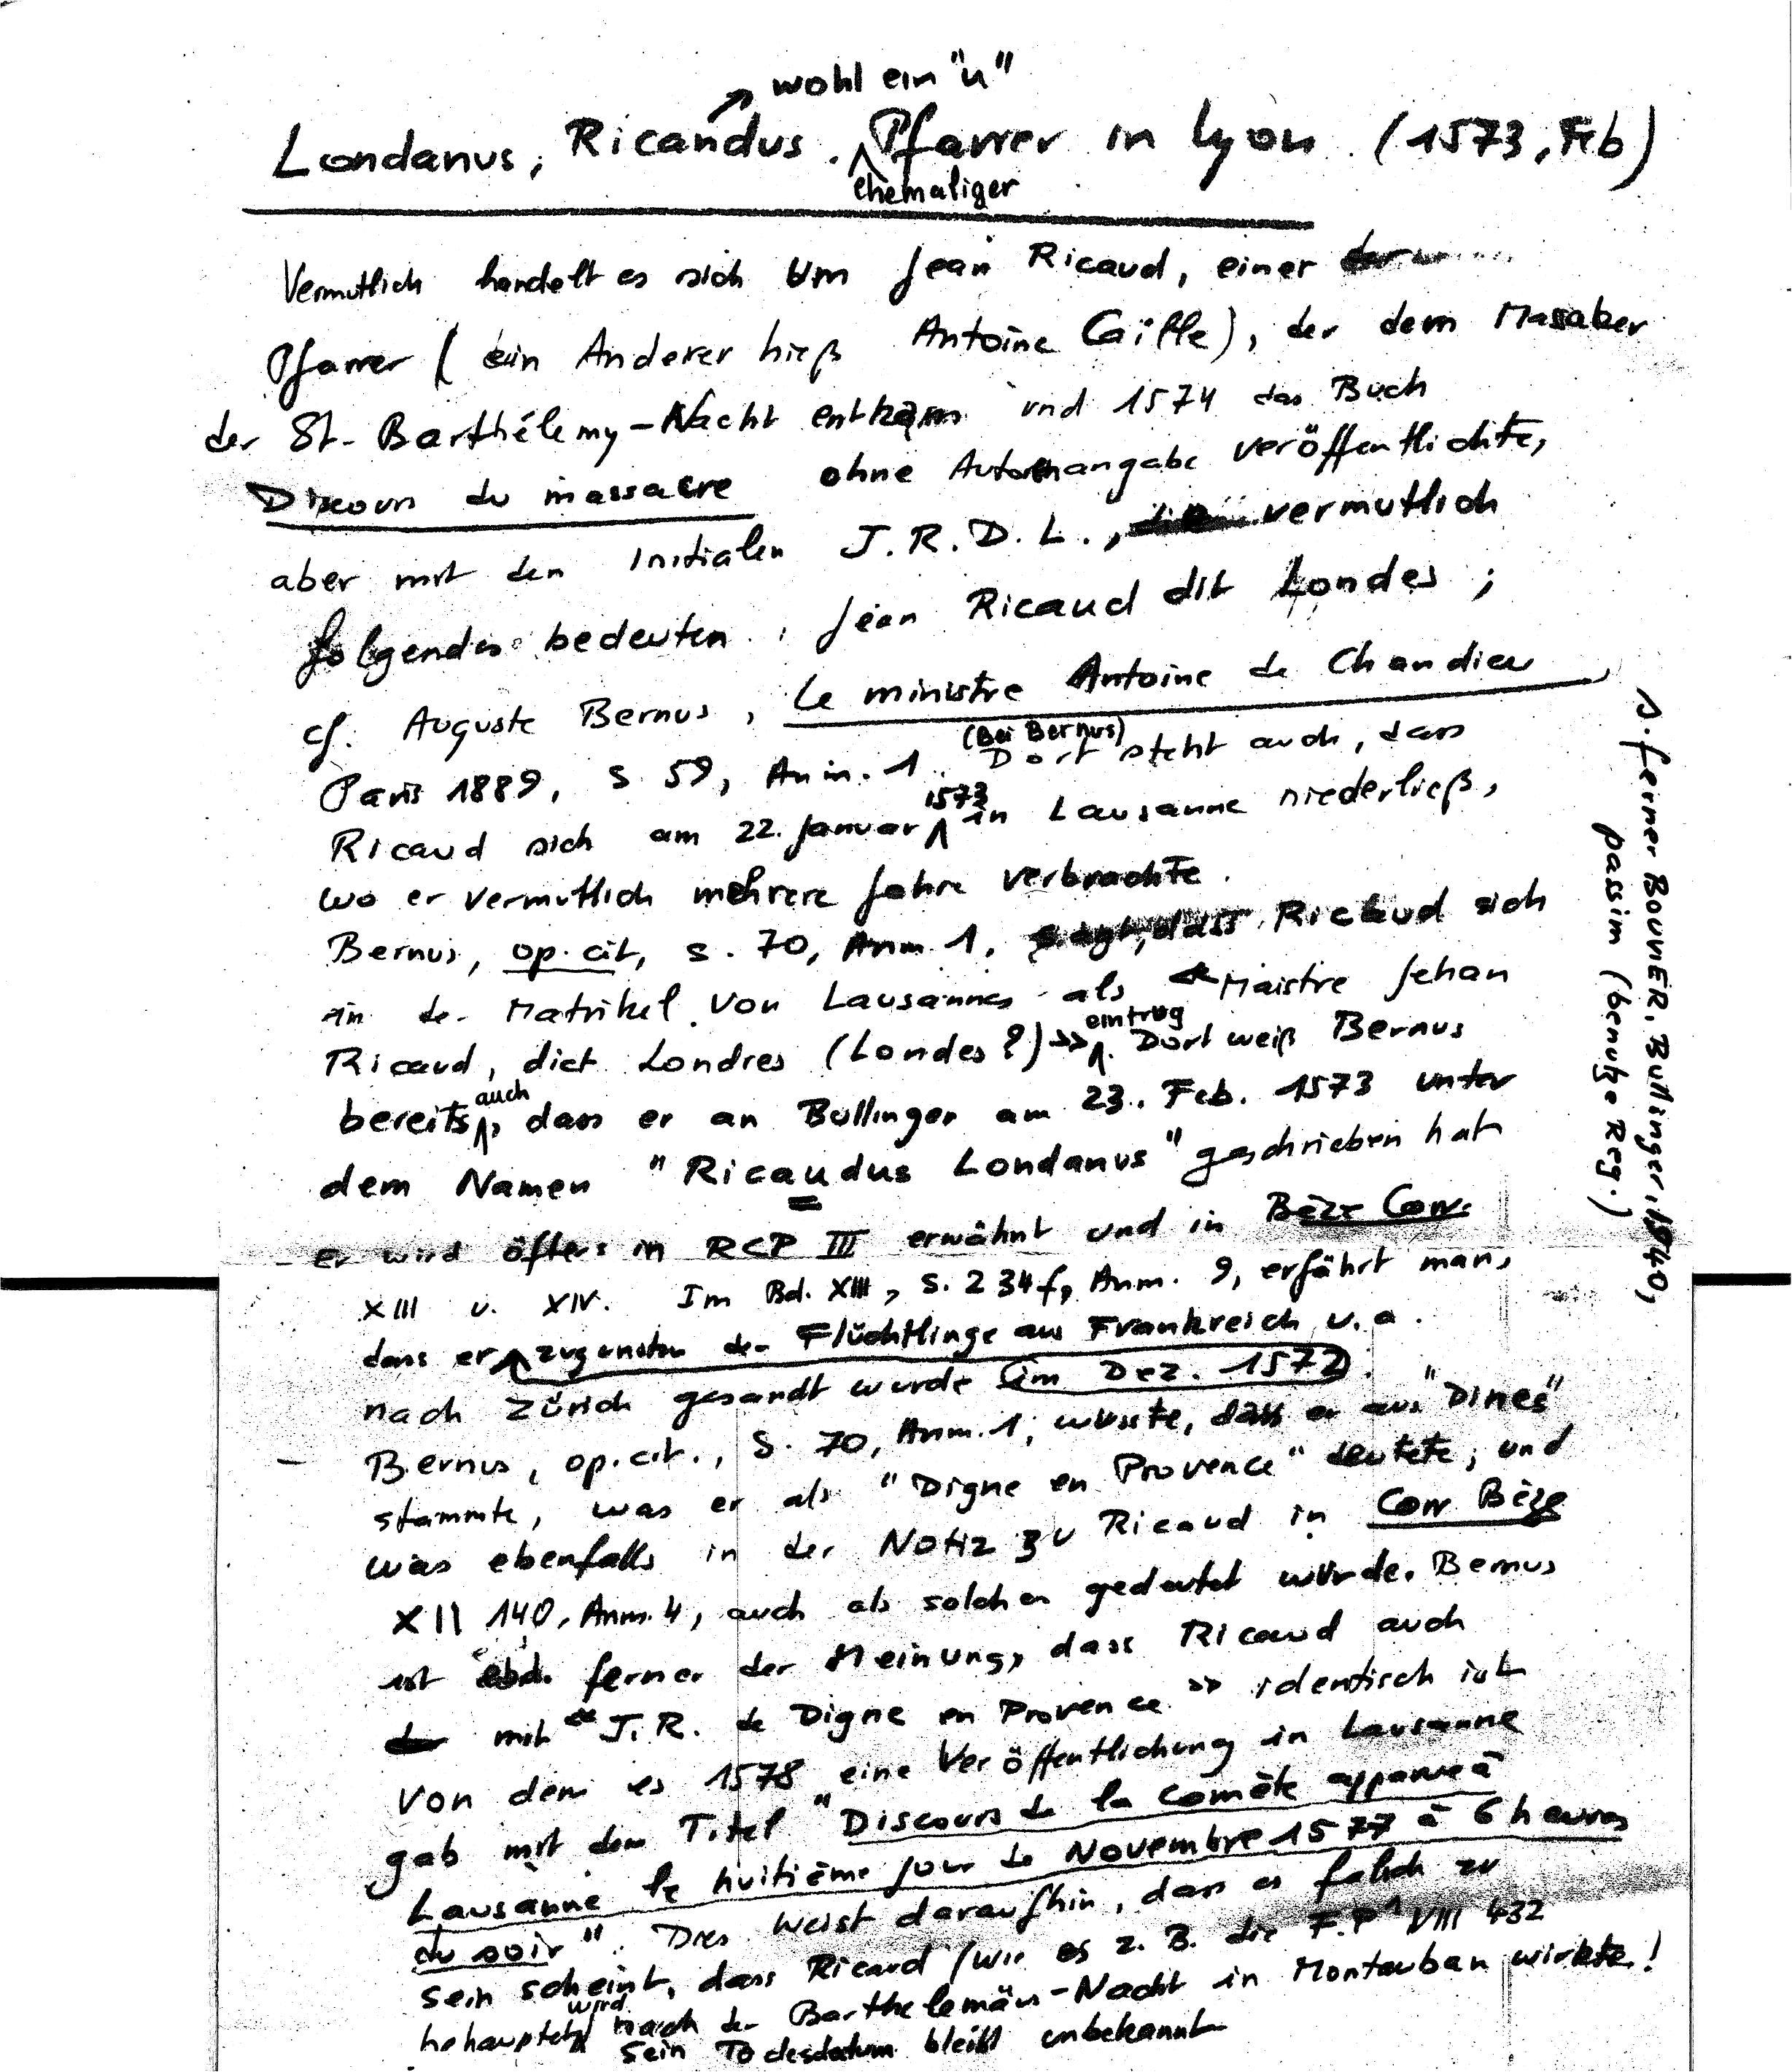 wohl ein "u"
Londanus, Ricandus. Pfarrer in Lyon. (1573, Feb)
ehemaliger
Vermutlich handelt es sich um Jean Ricaud, einer
Pfarrer (ein Anderer hieß Antoine Caille), der dem Massaker
der St-Barthélemy-Nacht entkam und 1574 das Buch
Discours du massacre ohne Autorenangabe veröffentlichte,
aber mit den Initialen J.R.D.L., vermutlich
folgendes bedeuten: Jean Ricaud dit Londes;
cf. Auguste Bernus, Le ministre Antoine de Chandieu,
Paris 1889, S. 59, Anm. 1. (Bei Bernus) Dort steht auch, dass
Ricaud sich am 22. Januar 1573 in Lausanne niederließ,
wo er vermutlich mehrere Jahre verbrachte.
Bernus, op. cit, S. 70, Anm. 1, sagt, dass Ricaud sich
in der Matrikel von Lausanne als «Maistre Jehan
Ricaud, dict Londres (Londes?)» eintrug. Dort weiß Bernus
bereits auch, dass er an Bullinger am 23. Feb. 1573 unter
dem Namen "Ricaudus Londanus" geschrieben hat
- Er wird öfters in RCP III erwähnt und in Bèze Corr.
XIII u. XIV. Im Bd. XIII, S. 234f, Anm. 9, erfährt man,
dass er zugunsten der Flüchtlinge aus Frankreich u.a.
nach Zürich gesandt wurde (im Dez. 1572).
- Bernus, op. cit., S. 70, Anm. 1, wusste, dass er aus "Dines"
stammte, was er als "Digne en Provence" deutete, und
was ebenfalls in der Notiz zu Ricaud in Corr Bèze
XII 140, Anm. 4, auch als solches gedeutet wurde. Bernus
ist ebd. ferner der Meinung, dass Ricaud auch
mit «J.R. de Digne en Provence» identisch ist
von dem es 1578 eine Veröffentlichung in Lausanne
gab mit dem Titel "Discours de la comète apparue à
Lausanne le huitième jour de Novembre 1577 à 6 heures
du soir". Dies weist daraufhin, dass es falsch zu
sein scheint, dass Ricaud (wie es z.B. die F.P² VIII 432
behauptet wird nach der Barthelemäus-Nacht in Montauban wirkte!
Sein Todesdatum bleibt unbekannt
s. ferner BOUVIER, Bullinger, 1940,
passim (benutze Reg.)